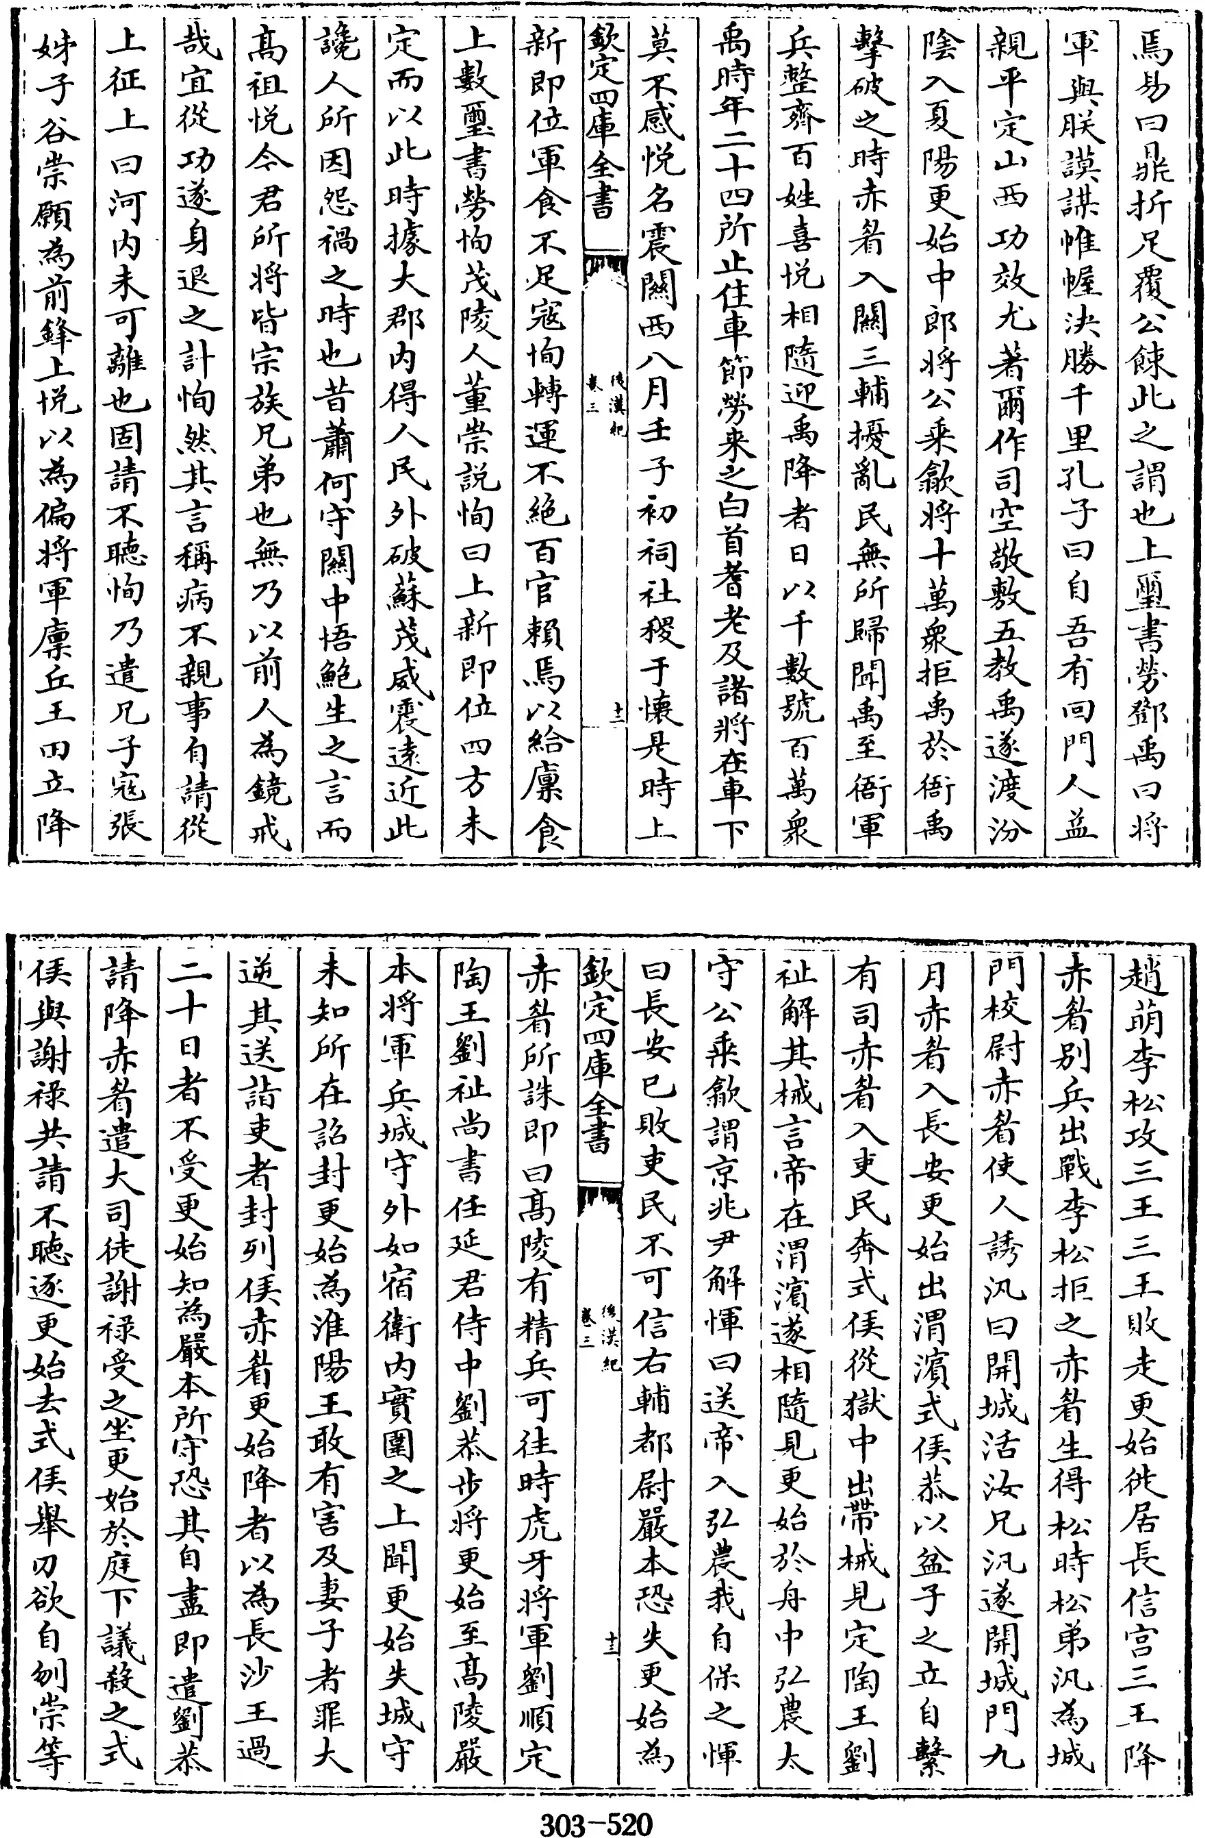 焉易曰鼎折足覆公餗此之謂也上璽書勞鄧禹曰將
軍與朕謨謀帷幄決勝千里孔子曰自吾有回門人益
親平定山西功效尤著爾作司空敬敷五教禹遂渡汾
陰入夏陽更始中郎將公乘歙將十萬衆拒禹於衙禹
擊破之時赤眉入關三輔擾亂民無所歸聞禹至衙軍
兵整齊百姓喜悅相隨迎禹降者日以千數號百萬衆
禹時年二十四所止住車節勞來之白首耆老及諸將在車下
莫不感悅名震關西八月壬子初祠社稷于懷是時上
欽定四庫全書
後漢紀
卷三
十二
新即位軍食不足寇恂轉運不絕百官賴焉以給廪食
上數璽書勞恂茂陵人董崇説恂曰上新即位四方未
定而以此時據大郡内得人民外破蘇茂威震遠近此
讒人所因怨禍之時也昔蕭何守關中悟鮑生之言而
髙祖悅今君所將皆宗族兄弟也無乃以前人為鏡戒
哉宜從功遂身退之計恂然其言稱病不親事自請從
上征上曰河内未可離也固請不聽恂乃遣兄子寇張
姊子谷崇願為前鋒上悅以為偏將軍廪丘王田立降
趙萌李松攻三王三王敗走更始徙居長信宫三王降
赤眉别兵出戰李松拒之赤眉生得松時松弟汎為城
門校尉赤眉使人誘汎曰開城活汝兄汎遂開城門九
月赤眉入長安更始出渭濱式侯恭以盆子之立自繫
有司赤眉入吏民奔式侯從獄中出帶械見定陶王劉
祉解其械言帝在渭濱遂相隨見更始於舟中弘農太
守公乘歙謂京兆尹解惲曰送帝入弘農我自保之惲
曰長安已敗吏民不可信右輔都尉嚴本恐失更始為
欽定四庫全書
後漢紀
卷三
十三
赤眉所誅即曰髙陵有精兵可往時虎牙將軍劉順定
陶王劉祉尚書任延君侍中劉恭步將更始至髙陵嚴
本將軍兵城守外如宿衛内實圍之上聞更始失城守
未知所在詔封更始為淮陽王敢有害及妻子者罪大
逆其送詣吏者封列侯赤眉更始降者以為長沙王過
二十日者不受更始知為嚴本所守恐其自盡即遣劉恭
請降赤眉遣大司徒謝禄受之坐更始於庭下議殺之式
侯與謝禄共請不聽逐更始去式侯舉刃欲自刎崇等
303-520